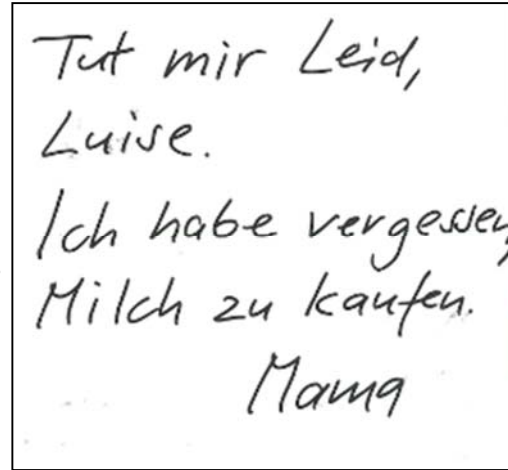 Tut mir Leid,
Luise.
Ich habe vergessen,
Milch zu kaufen.
Mama